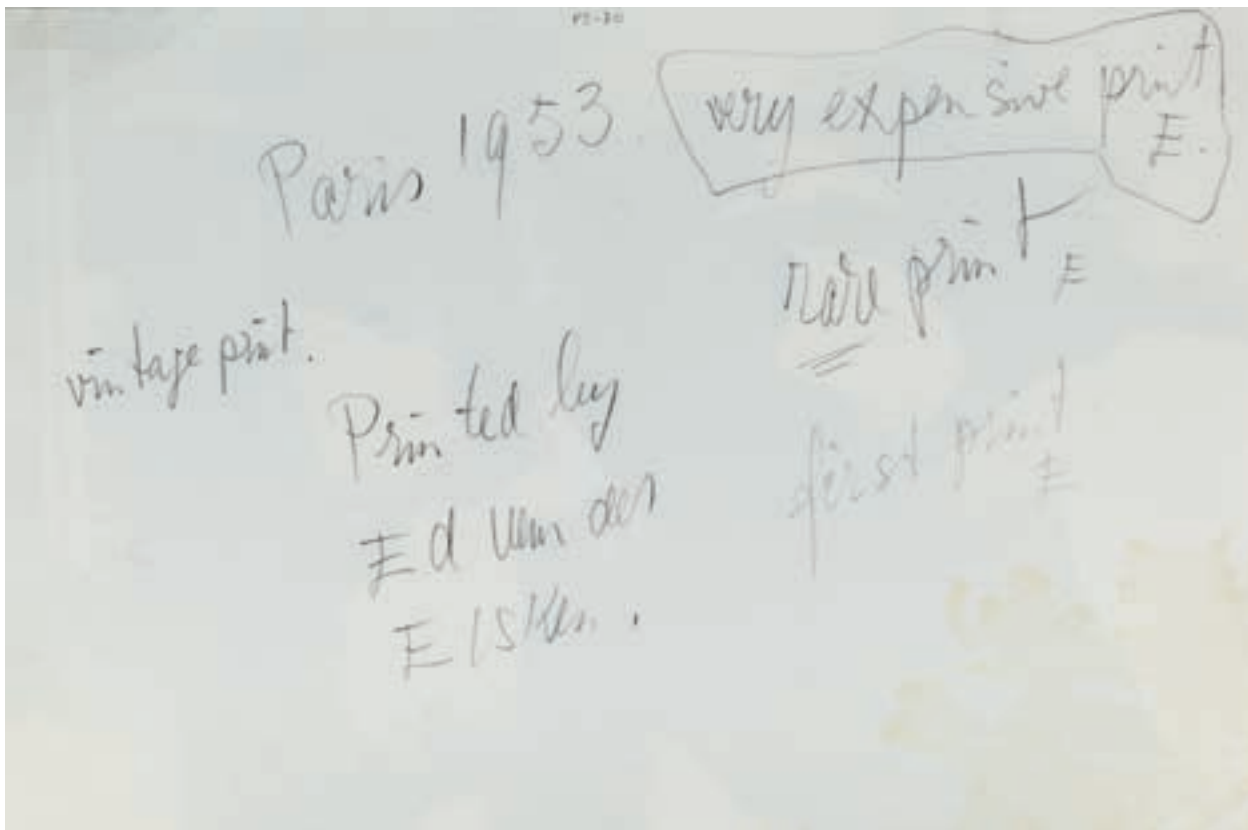 Paris 1953.
very expensive print
E.
rare print
E
vintage print.
Printed by
Ed van der
Elsken.
first print
E